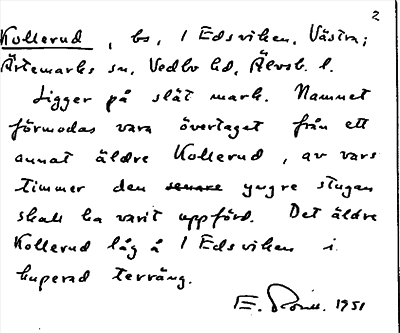 2
Kollerud, bs, 1 Edsviken, Västra;
Ärtemarks sn, Vedbo hd, Älvsb. l.
Ligger på slät mark. Namnet
förmodas vara övertaget från ett
annat äldre Kollerud, av vars
timmer den senare yngre stugan
skall ha varit uppförd. Det äldre
Kollerud låg å 1 Edsviken i
kuperad terräng.
E. 1951